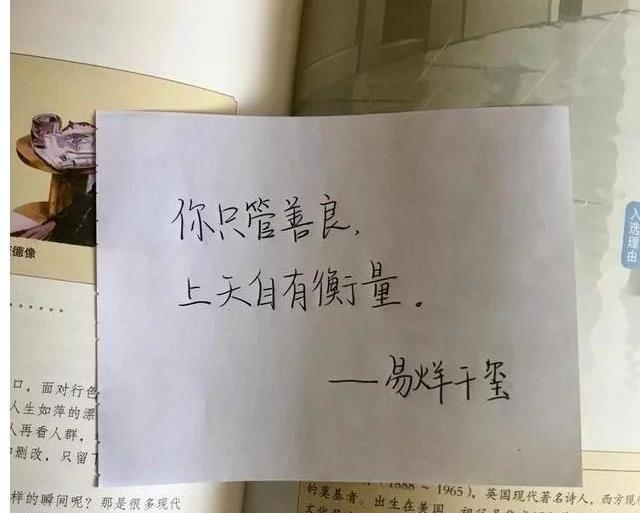 你只管善良，
上天自有衡量。
——易烊千玺
德像
入选理由
口，面对行色
人生如萍的漂
人再看人群，
删改，只留
样的瞬间呢？那是很多现代
(1888～1965)，英国现代著名诗人，西方现
的奠基者。出生在美国